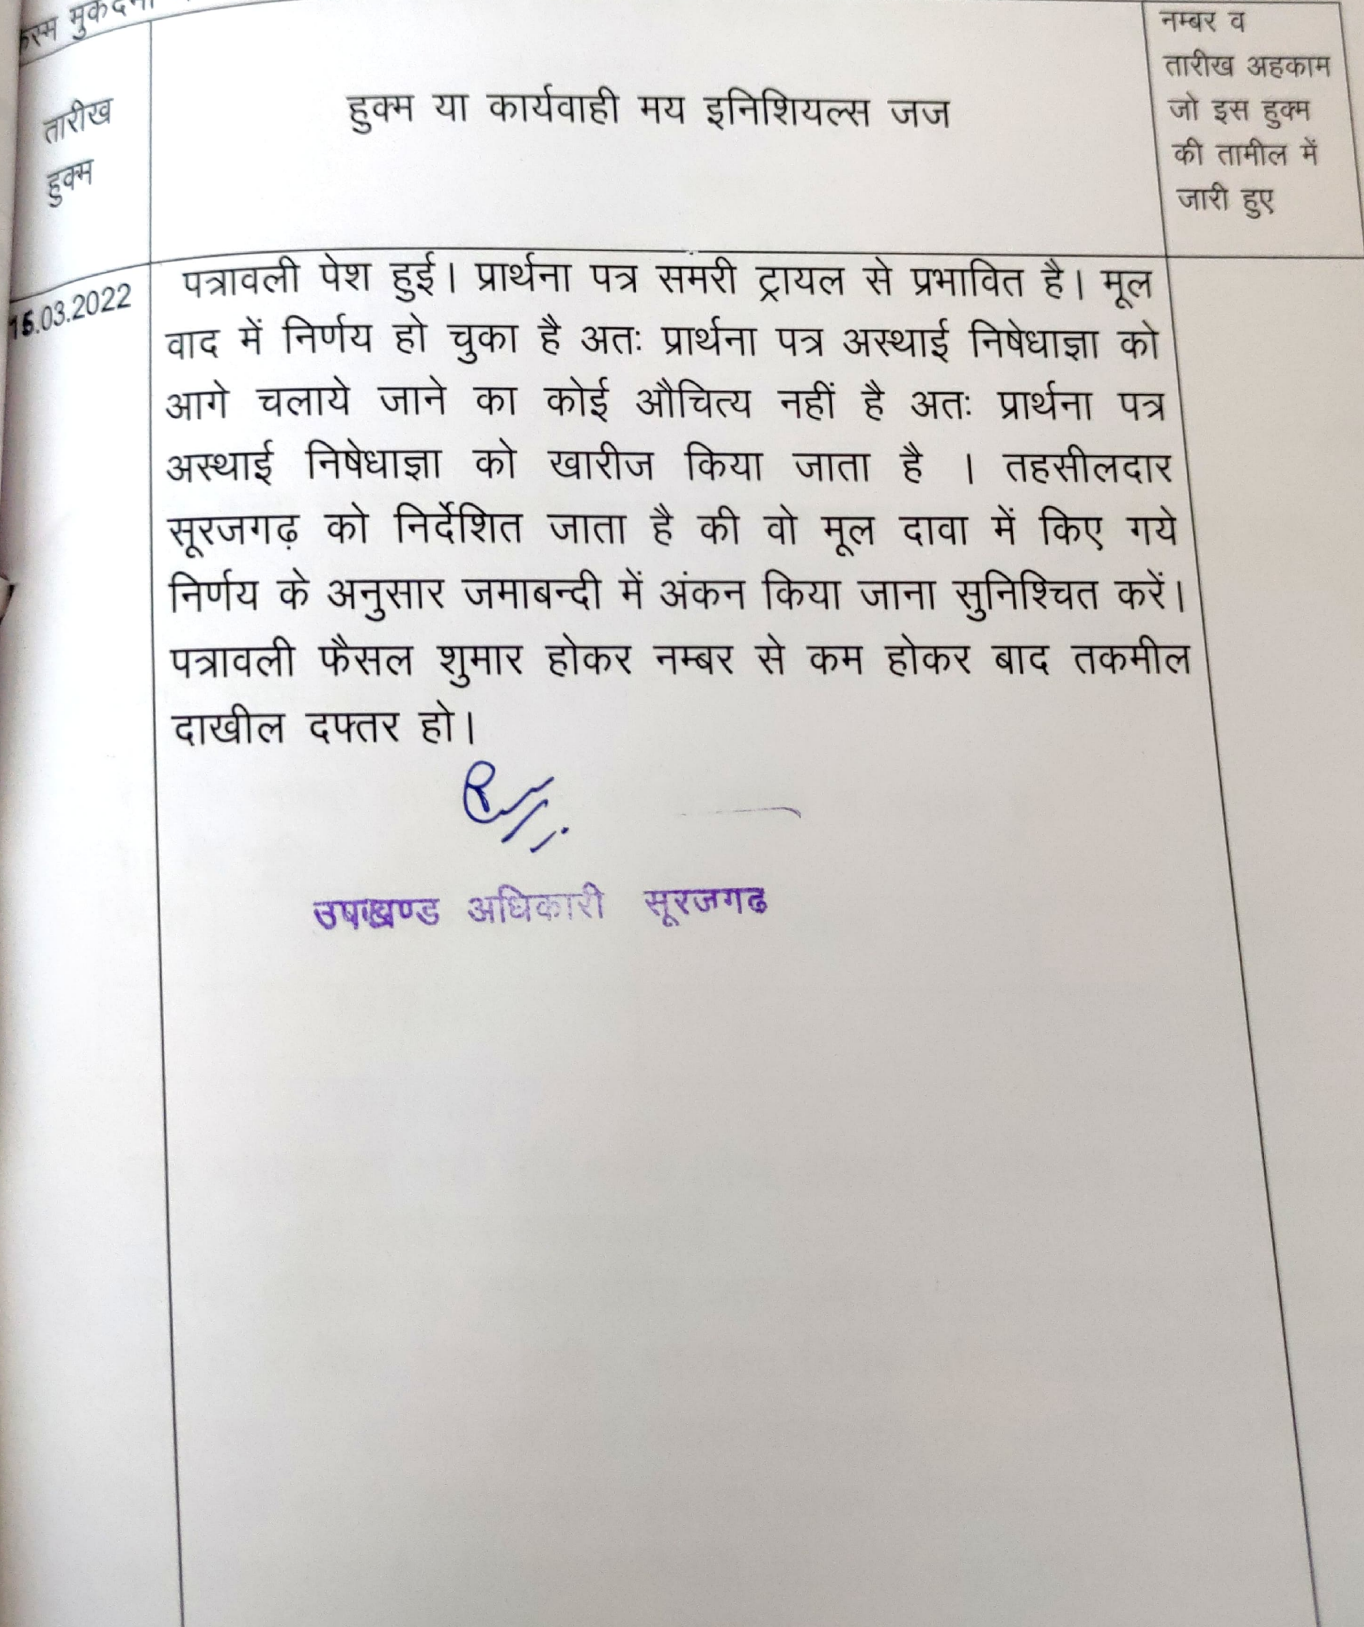 मुकदमा
तारीख
हुक्म
हुक्म या कार्यवाही मय इनिशियल्स जज
नम्बर व
तारीख अहकाम
जो इस हुक्म
की तामील में
जारी हुए
15.03.2022
पत्रावली पेश हुई। प्रार्थना पत्र समरी ट्रायल से प्रभावित है। मूल
वाद में निर्णय हो चुका है अतः प्रार्थना पत्र अस्थाई निषेधाज्ञा को
आगे चलाये जाने का कोई औचित्य नहीं है अतः प्रार्थना पत्र
अस्थाई निषेधाज्ञा को खारीज किया जाता है । तहसीलदार
सूरजगढ़ को निर्देशित जाता है की वो मूल दावा में किए गये
निर्णय के अनुसार जमाबन्दी में अंकन किया जाना सुनिश्चित करें।
पत्रावली फैसल शुमार होकर नम्बर से कम होकर बाद तकमील
दाखील दफ्तर हो।
उपखण्ड अधिकारी सूरजगढ